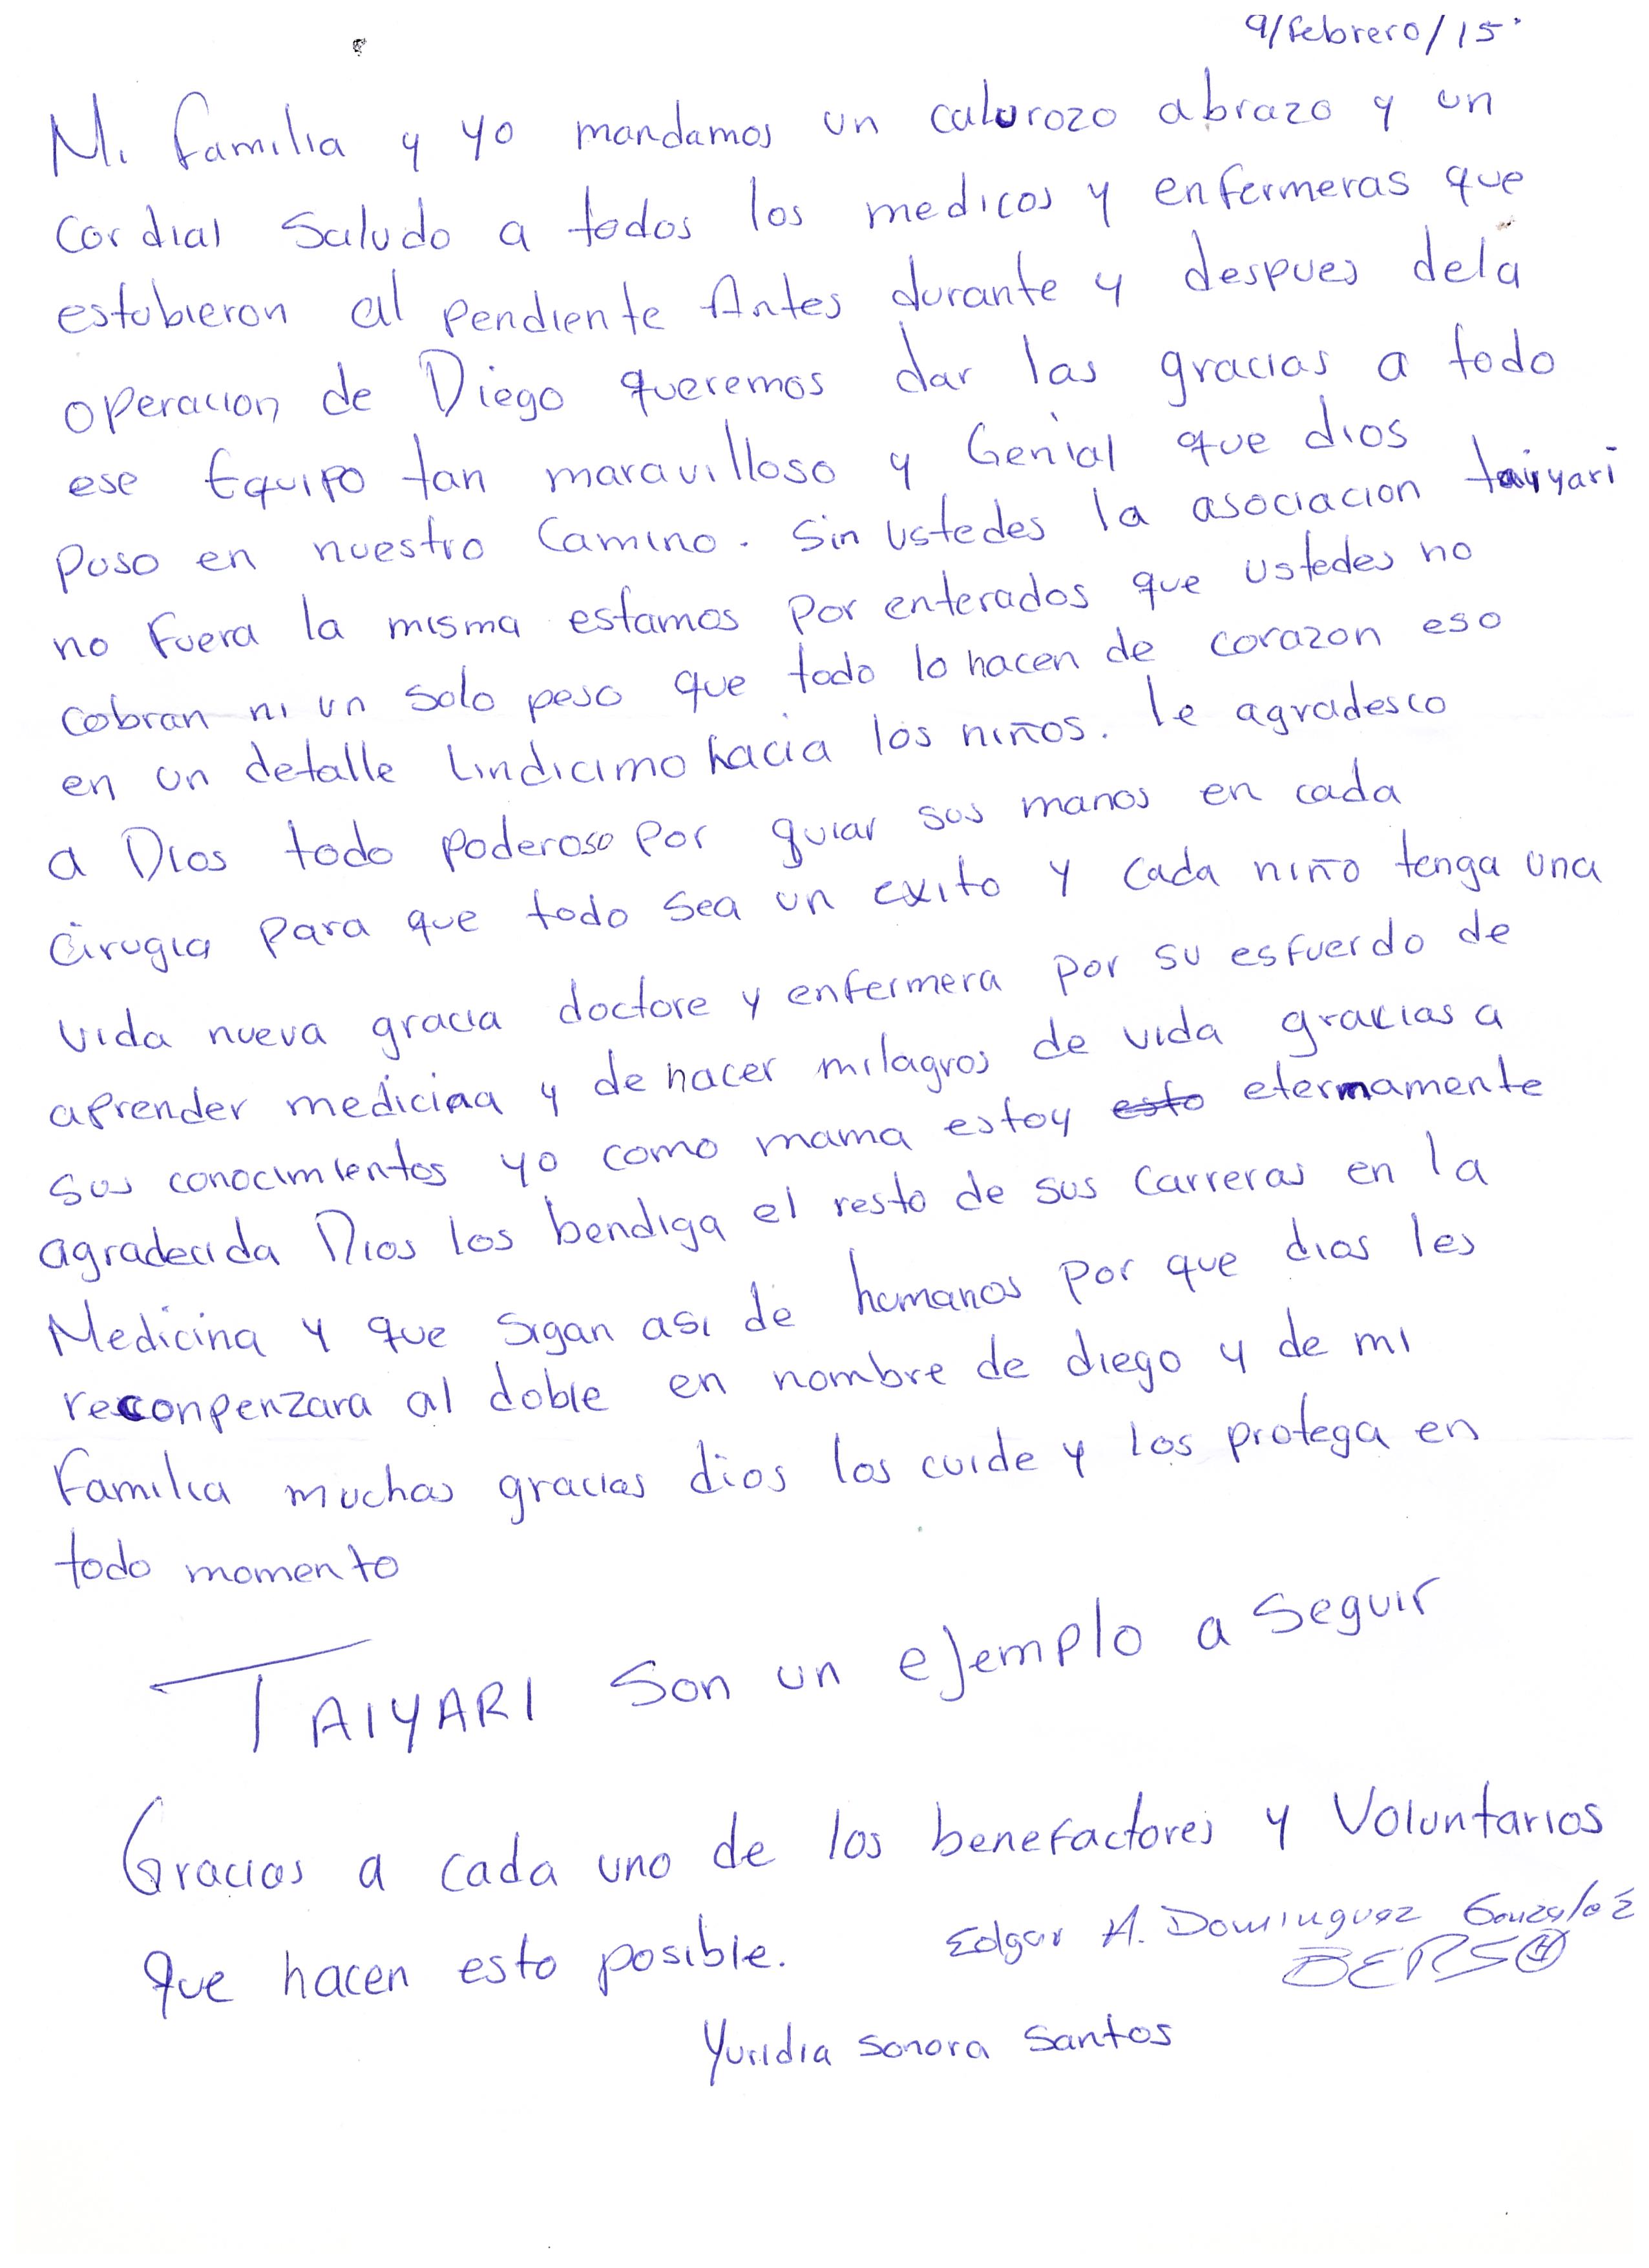 9/febrero/15
Mi familia y yo mandamos un calurozo abrazo y un
cordial saludo a todos los medicos y enfermeras que
estubieron al pendiente Antes durante y despues dela
operacion de Diego queremos dar las gracias a todo
ese Equipo tan maravilloso y Genial que dios
puso en nuestro Camino. Sin ustedes la asociacion taiyari
no fuera la misma estamos por enterados que ustedes no
cobran ni un solo peso que todo lo hacen de corazon eso
en un detalle lindicimo hacia los niños. le agradesco
a Dios todo poderoso por guiar sus manos en cada
Cirugia para que todo sea un exito y cada niño tenga una
vida nueva gracia doctore y enfermera por su esfuerdo de
aprender medicina y de hacer milagros de vida gracias a
sus conocimientos yo como mama estoy esto etermamente
agradecida Dios los bendiga el resto de sus carreras en la
Medicina y que sigan asi de humanos por que dios les
reconpenzara al doble en nombre de diego y de mi
familia muchas gracias dios los cuide y los protega en
todo momento
TAIYARI Son un ejemplo a seguir
Gracias a cada uno de los benefactores y Voluntarios
que hacen esto posible.
Edgar A. Dominguez Gonzalez
Yuridia Sonora Santos